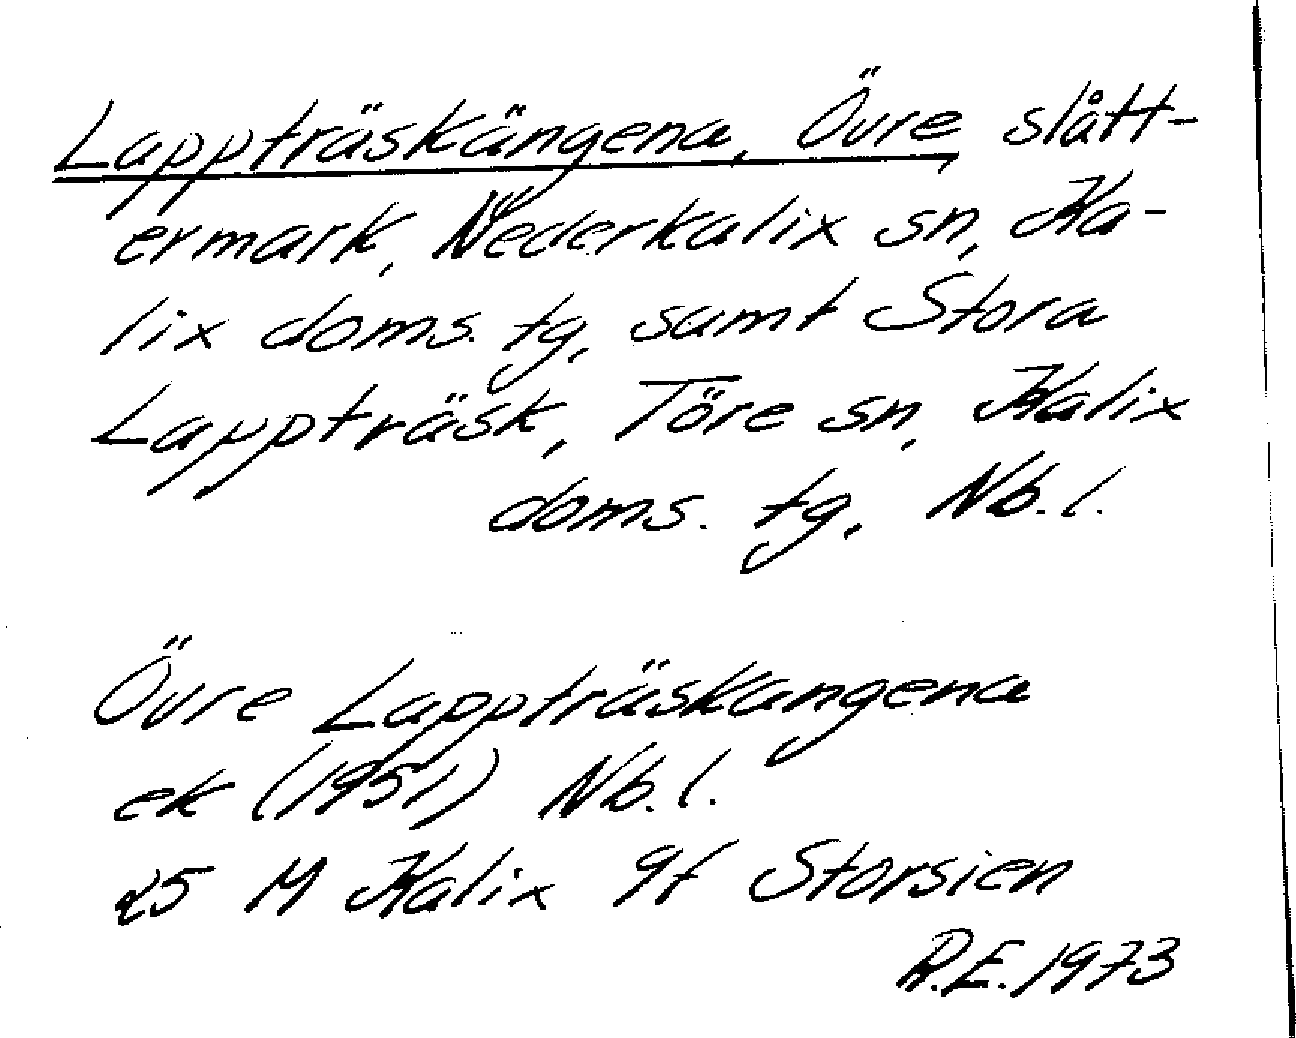 Lappträskängena, Övre, slått-
ermark, Nederkalix sn, Ka-
lix doms. tg, samt Stora
Lappträsk, Töre sn, Kalix
doms. tg, Nb.l.
Övre Lappträskangena
ek (1951) Nb.l.
25 M Kalix 9f Storsien
R.E. 1973